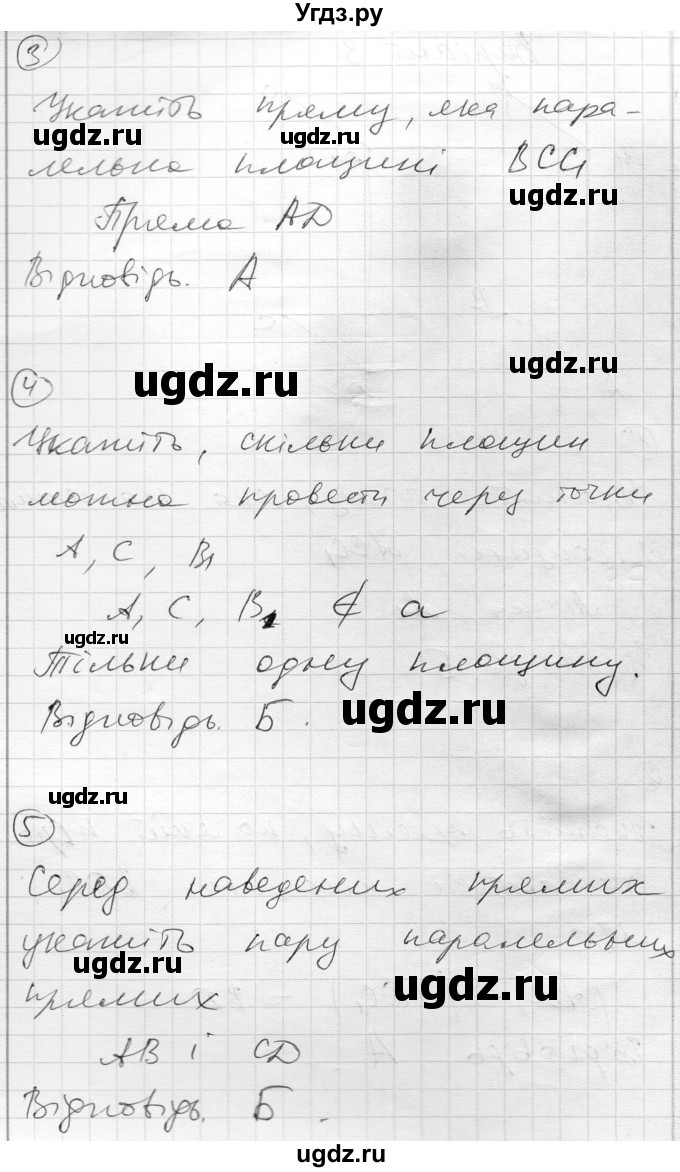 Угдз.ру
3
Укажіть пряму, яка пара-
ugdz.ru ugdz.ru
лельна площині BCC1
ugdz.ru
Пряма AD
Відповідь. А
ugdz.ru
ugdz.ru
4
Укажіть, скільки площин
можна провести через точки
A, C, B1
A, C, B1 ∉ a
ugdz.ru
Тільки одну площину.
Відповідь. Б.
ugdz.ru
ugdz.ru
5
Серед наведених прямих
укажіть пару паралельних
ugdz.ru
прямих
ugdz.ru
AB і CD
Відповідь. Б.
ugdz.ru